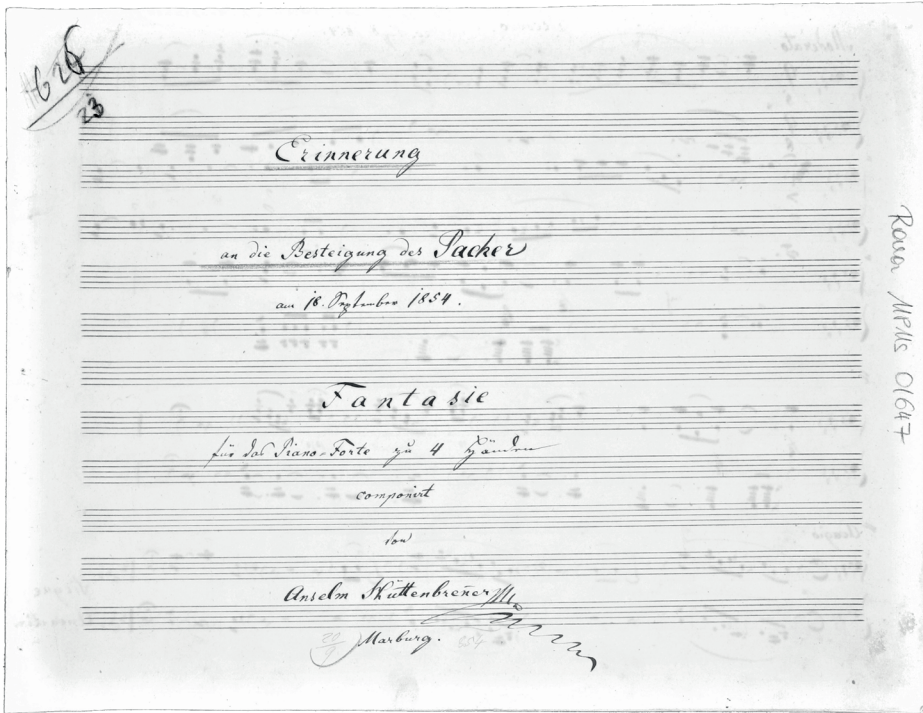 624
23
Erinnerung
an die Besteigung des Pacher
am 18. September 1854.
Fantasie
für das Piano-Forte zu 4 Händen
componirt
von
Anselm Hüttenbreñer
Marburg.
Rara MPMs 01647